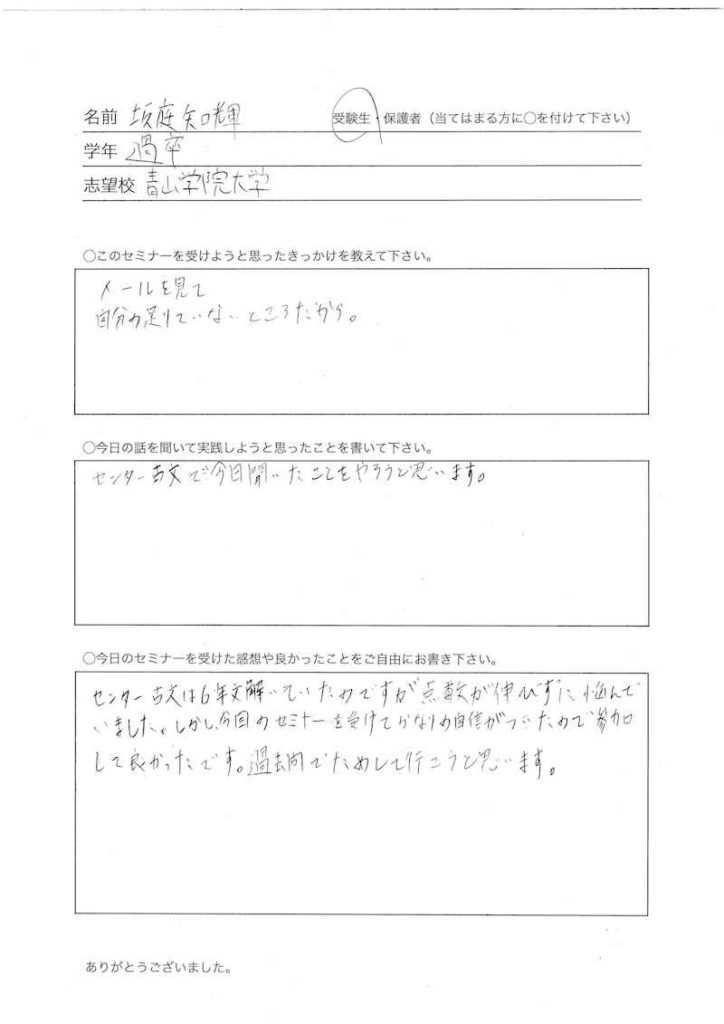 名前 坂庭知輝 受験生・保護者（当てはまる方に〇を付けて下さい）
学年 過卒
志望校 青山学院大学
〇このセミナーを受けようと思ったきっかけを教えて下さい。
メールを見て
自分の足りていないところだから。
〇今日の話を聞いて実践しようと思ったことを書いて下さい。
センター古文で今日聞いたことをやろうと思います。
〇今日のセミナーを受けた感想や良かったことをご自由にお書き下さい。
センター古文は6年文解いていたのですが点数が伸びずに悩んで
いました。しかし、今回のセミナーを受けてかなりの自信がついたので参加
して良かったです。過去問でためして行こうと思います。
ありがとうございました。